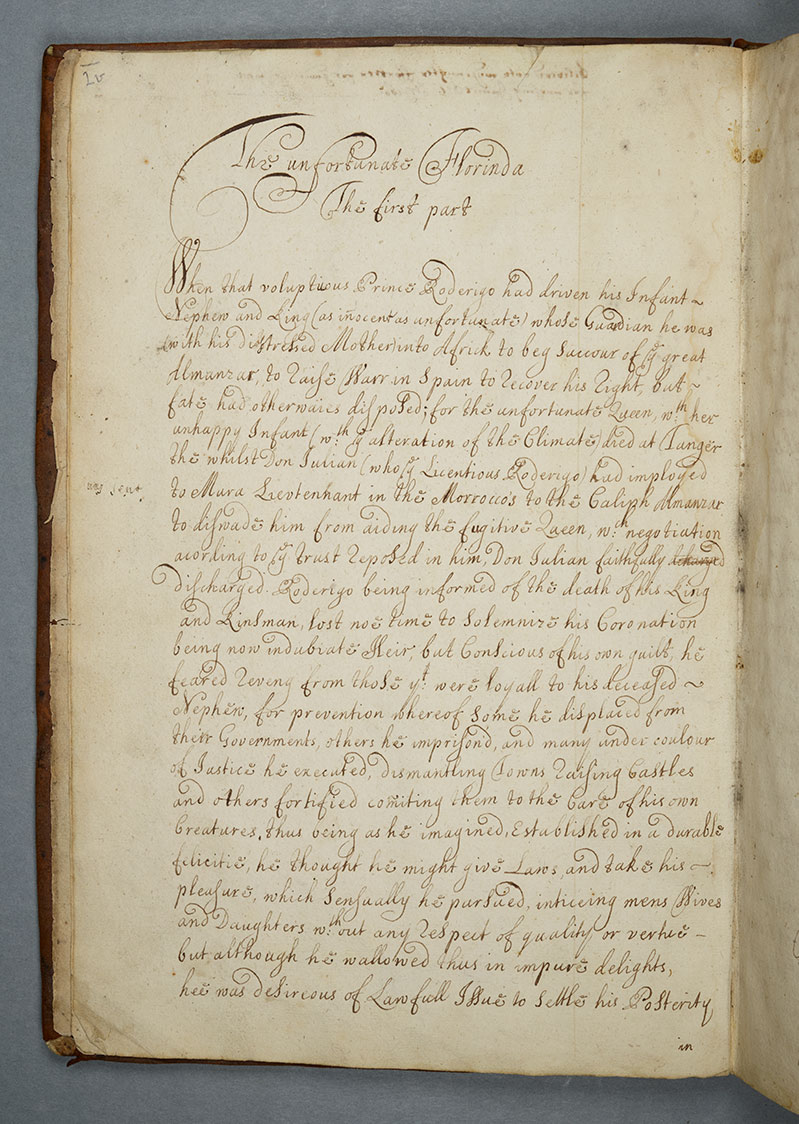 The unfortunate Florinda
The first part
When that voluptious Prince Roderigo had driven his Infant ~
Nephew and King (as iñocent as unfortunate) whose Guardian he was
(with his distressed Mother) into Africk to beg Succour of yͤ great
Almanzar, to raise Warr in Spain to recover his right, but ~
fate had otherwaies disposed; for the unfortunate Queen, wᵗʰ her
unhappy Infant (wᵗʰ yͤ alteration of the Climate) died at Tanger
the whilst Don Iulian (who yͤ Licentious Roderigo) had imployed
was sent
to Mura Lievtenhant in the Morrocco's to the Caliph Almanzar
to diswade him from aiding the fugitive Queen, wᶜʰ negotiation
acording to yͤ trust reposed in him, Don Iulian faithfully
discharged. Roderigo being informed of the death of his King
and Kinsman, lost noe time to Solemnize his Coronation
being now indubiate Heir, but Conscious of his own guilt, he
feared reveng from those yᵗ were loyall to his deceased ~
Nephew, for prevention whereof Some he displaced from
their Governments, others he imprisond, and many under coulour
of Iustice he executed, dismantling Towns raising Castles
and others fortified com̃iting them to the Care of his own
Creatures, thus being as he imagined, Established in a durable
felicitie, he thought he might give Laws, and take his ~
pleasure, which Sensually he pursued, inticeing mens Wives
and Daughters wᵗʰout any respect of quality or vertue –
but although he wallowed thus in impure delights,
hee was desireous of Lawfull Issue to settle his Posterity
in